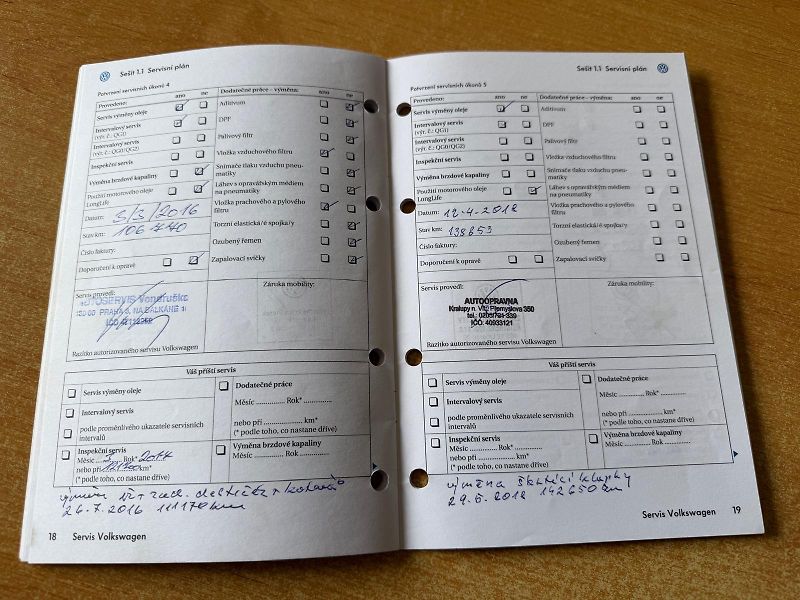 Sešit 1.1 Servisní plán
Potvrzení servisních úkonů 4
Provedeno: ano ne
Servis výměny oleje
Intervalový servis
(výr. č.: QG1)
Intervalový servis
(výr. č.: QG0/QG2)
Inspekční servis
Výměna brzdové kapaliny
Použití motorového oleje
LongLife
Datum: 3/3/2016
Stav km: 106 440
Číslo faktury:
Doporučení k opravě
Dodatečné práce - výměna: ano ne
Aditivum
DPF
Palivový filtr
Vložka vzduchového filtru
Snímače tlaku vzduchu pneu-
matiky
Láhev s opravářským médiem
na pneumatiky
Vložka prachového a pylového
filtru
Torzní elastická/é spojka/y
Ozubený řemen
Zapalovací svíčky
Servis provedl:
AUTOSERVIS Vondruška
130 00 PRAHA 3, NA BALKÁNĚ
IČO
Razítko autorizovaného servisu Volkswagen
Záruka mobility:
Váš příští servis
Servis výměny oleje
Intervalový servis
podle proměnlivého ukazatele servisních
intervalů
Inspekční servis
Měsíc 3 Rok*
nebo při km*
(* podle toho, co nastane dříve)
Dodatečné práce
Měsíc .............. Rok*
nebo při .................. km*
(* podle toho, co nastane dříve)
Výměna brzdové kapaliny
Měsíc .............. Rok
26.7.2016 111170km
18 Servis Volkswagen
Sešit 1.1 Servisní plán
Potvrzení servisních úkonů 5
Provedeno: ano ne
Servis výměny oleje
Intervalový servis
(výr. č.: QG1)
Intervalový servis
(výr. č.: QG0/QG2)
Inspekční servis
Výměna brzdové kapaliny
Použití motorového oleje
LongLife
Datum: 12-4-2018
Stav km: 138653
Číslo faktury:
Doporučení k opravě
Dodatečné práce - výměna: ano ne
Aditivum
DPF
Palivový filtr
Vložka vzduchového filtru
Snímače tlaku vzduchu pneu-
matiky
Láhev s opravářským médiem
na pneumatiky
Vložka prachového a pylového
filtru
Torzní elastická/é spojka/y
Ozubený řemen
Zapalovací svíčky
Servis provedl:
AUTOOPRAVNA
Kralupy n. Vlt., Přemyslova 350
tel.: 0205/721 339
IČO: 40933121
Razítko autorizovaného servisu Volkswagen
Záruka mobility:
Váš příští servis
Servis výměny oleje
Intervalový servis
podle proměnlivého ukazatele servisních
intervalů
Inspekční servis
Měsíc .............. Rok*
nebo při .................. km*
(* podle toho, co nastane dříve)
Dodatečné práce
Měsíc .............. Rok*
nebo při .................. km*
(* podle toho, co nastane dříve)
Výměna brzdové kapaliny
Měsíc .............. Rok
výměna škrtící klapky
29.5.2018 142650 km
Servis Volkswagen 19